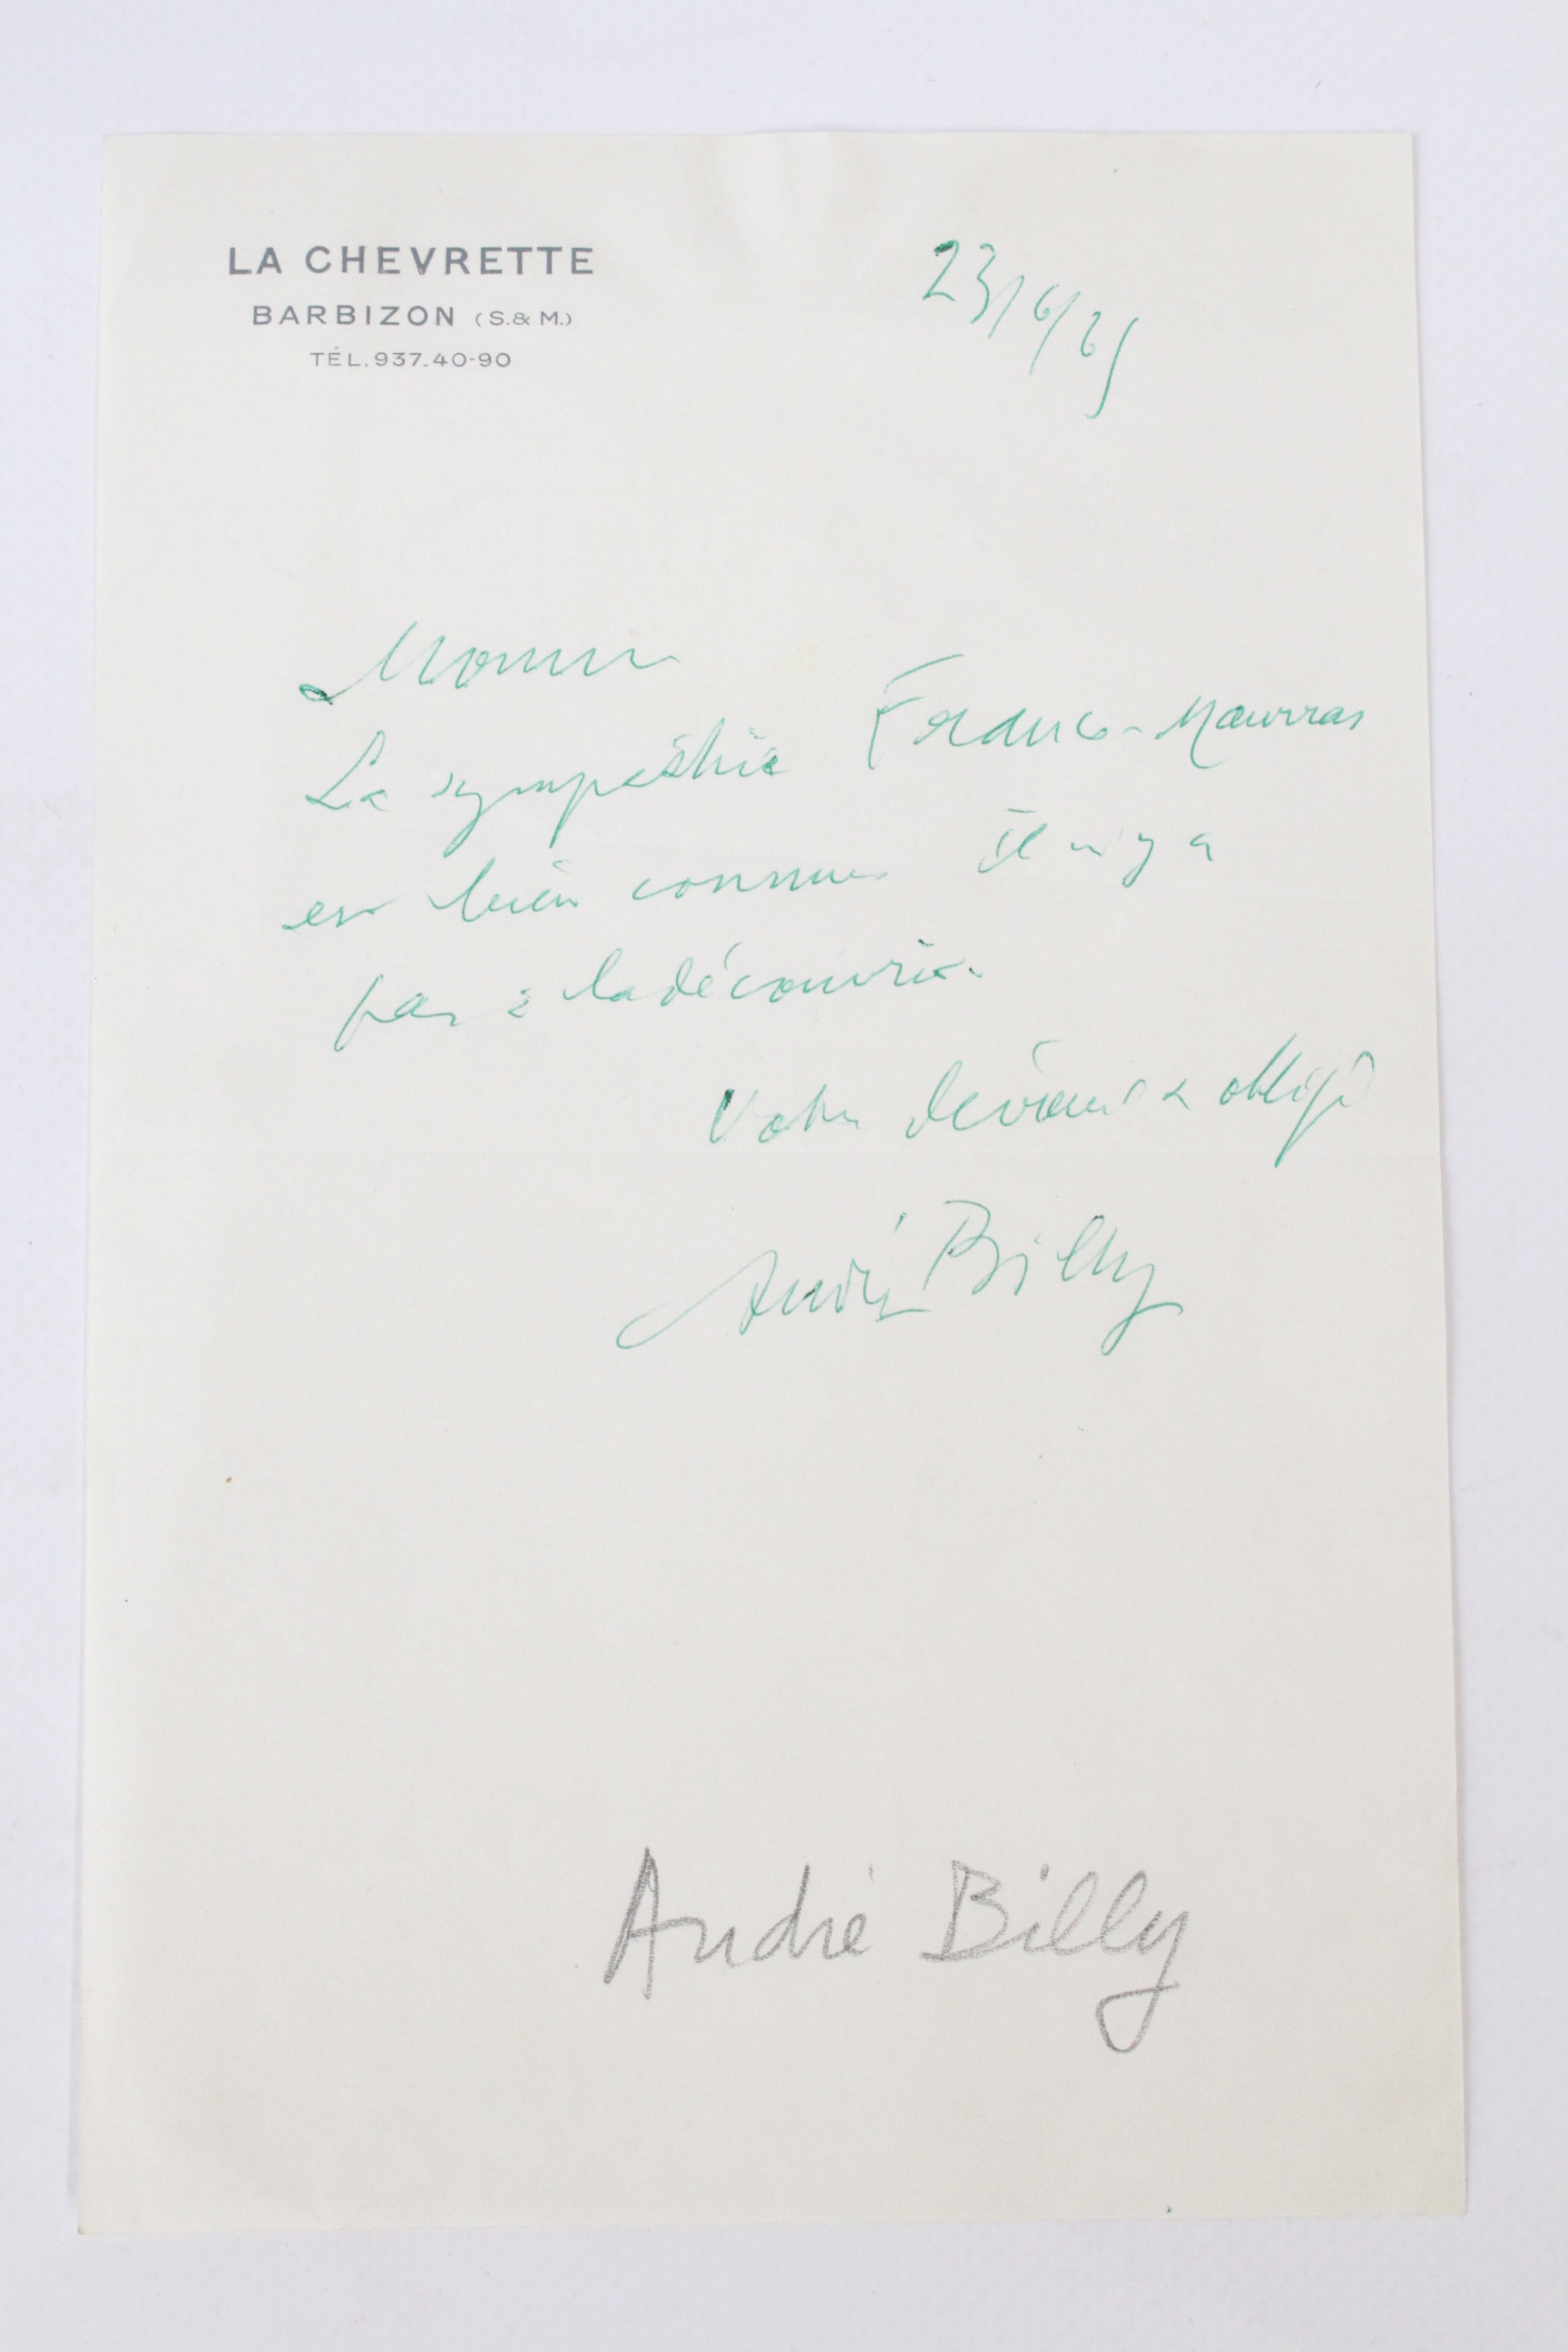 LA CHEVRETTE
BARBIZON (S.& M.)
TÉL. 937-40-90
23/6/65
Monsieur
La sympathie France-Maurras
est bien connue. Il n'y a
pas à la découvrir.
Votre dévoué & obligé
André Billy
André Billy